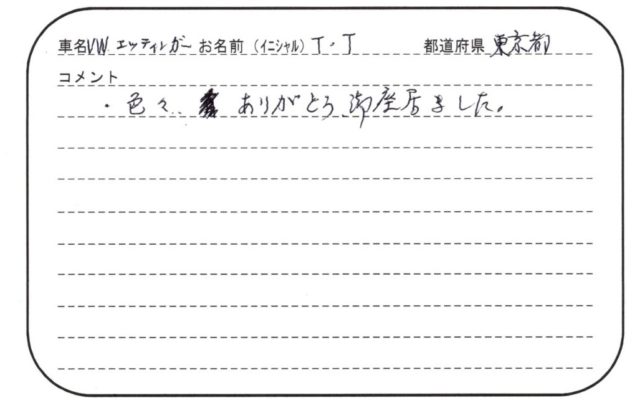 車名VW エッティンガー お名前（イニシャル）T・J 都道府県 東京都
コメント
・色々、ありがとう御座居ました。